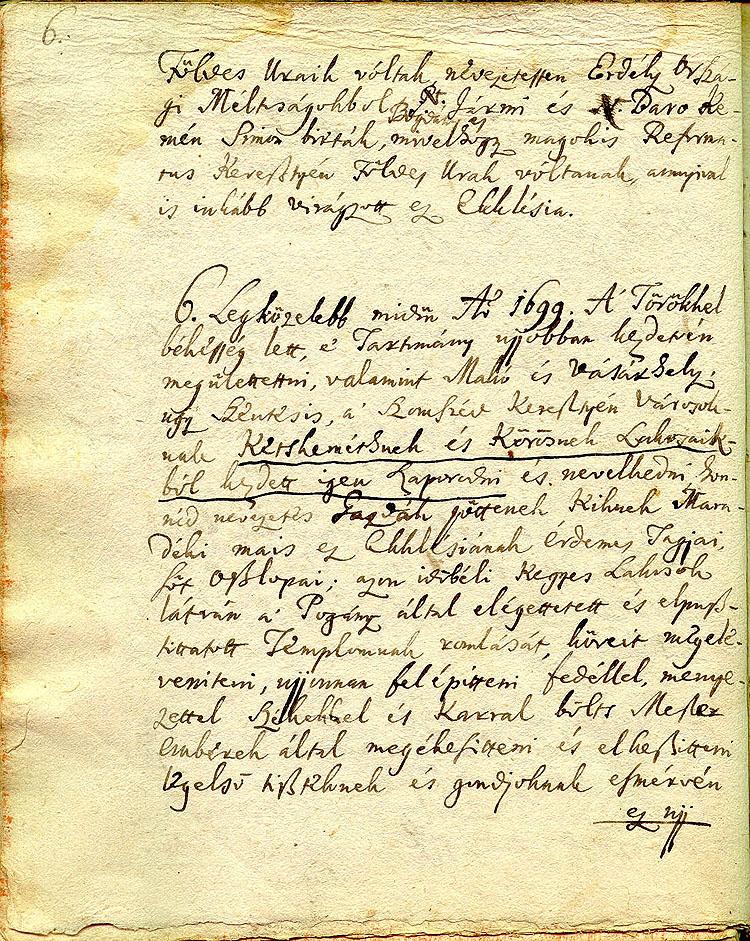 6.
Földes Uraik vóltak, nevezetessen Erdély Orsza-
gi Méltoságokbol Rt. Jármi és N. Baro Ke-
Bogdán és
mén Simon birták, mivelhogy magok is Reforma-
tus Keresztyén Földes Urak vóltanak, annyival
is inkább virágzott ez Ekklésia.
6. Legközelebb midőn Aº 1699. A' Törökkel
békesség lett, e' Tartomány ujjobban kezdetvén
megülettetni, valamint Makó és Vásárhely;
ugy Szentesis, a' Szomszéd Keresztyén Városok-
nak Ketskemétnek és Körösnek Lakosaik-
ból kezdett igen szaporodni és nevelkedni, hon-
néd nevezetes Gazdák jöttenek kiknek Mara-
déki mais ez Ekklésiának érdemes Tagjai,
sőt Oszlopai; azon időbéli Kegyes Lakosok
látván a' Pogány által elégettetett és elpusz-
tittatott Templomnak romlását, köveit mégele-
veniteni, ujjonnan felépitteni fedéllel, menye-
zettel Székekkel és Karral bölts Mester
emberek által megékesitteni és elkeszitteni
legelső tisztöknek és gondjoknak esmérvén
ez ujj